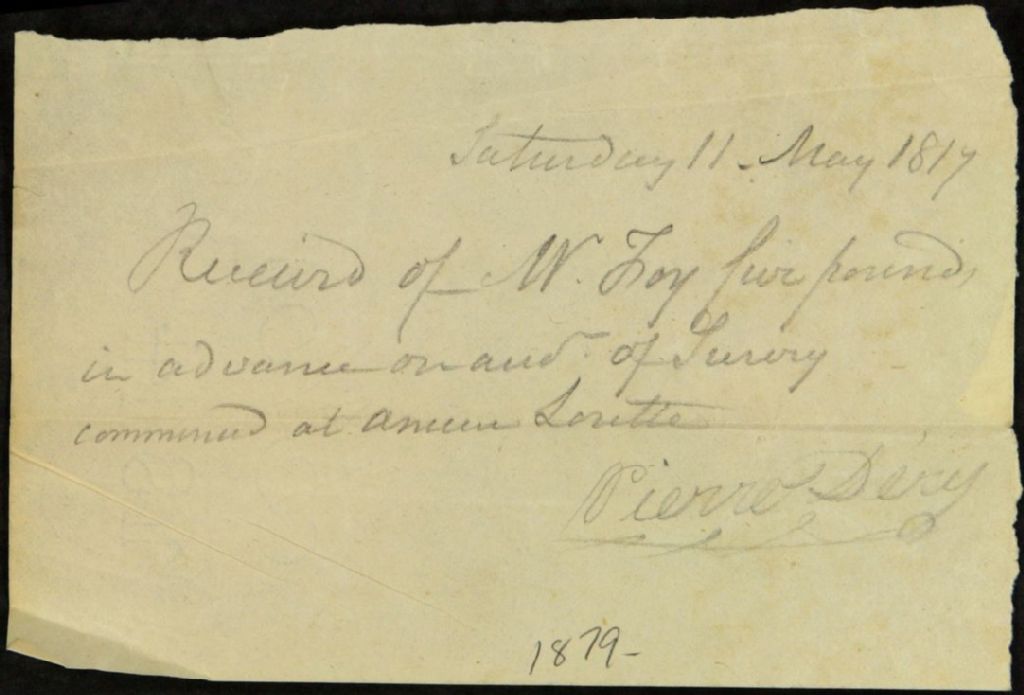 Saturday 11 - May 1817
Received of Mr. Foy five pounds
in advance on acct. of Survey
commenced at ancien Lorette
Pierre Déry
1879-